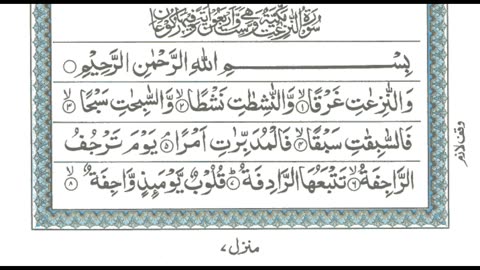 سُوْرَةُ النّٰزِعٰتِ مَكِّيَّةٌ وَّهِيَ سِتٌّ وَّاَرْبَعُوْنَ اٰيَةً وَّفِيْهَا رُكُوْعَانِ
بِسْمِ اللهِ الرَّحْمٰنِ الرَّحِيْمِ
وَالنّٰزِعٰتِ غَرْقًا ۙ۱ وَّالنّٰشِطٰتِ نَشْطًا ۙ۲ وَّالسّٰبِحٰتِ سَبْحًا ۙ۳
فَالسّٰبِقٰتِ سَبْقًا ۙ۴ فَالْمُدَبِّرٰتِ اَمْرًا ۘ۵ يَوْمَ تَرْجُفُ
الرَّاجِفَةُ ۙ۶ تَتْبَعُهَا الرَّادِفَةُ ؕ۷ قُلُوْبٌ يَّوْمَئِذٍ وَّاجِفَةٌ ۙ۸
وقف لازم
منزل ۷